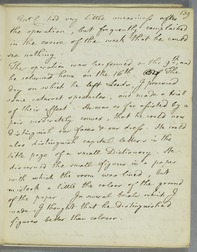 139
But he had very little uneasiness after
the operation, but frequently complained
in the course of the week that he could
see nothing.
The operation was performed on the 9th, and
he returned home on the 16th. The
day on which he left Leeds, I procured
some cataract spectacles, and made a trial
of their effect. As soon as assisted by a
pair moderately convex, that he could now
distinguish our faces & our dress. He could
also distinguish capital letters in the
title page of a small Dictionary. He
discovered the small figures in a paper
with which the room was lined, but
mistook a little the colour of the ground
of the paper. In several trials which I
made I thought that he distinguished
figures better than colours.